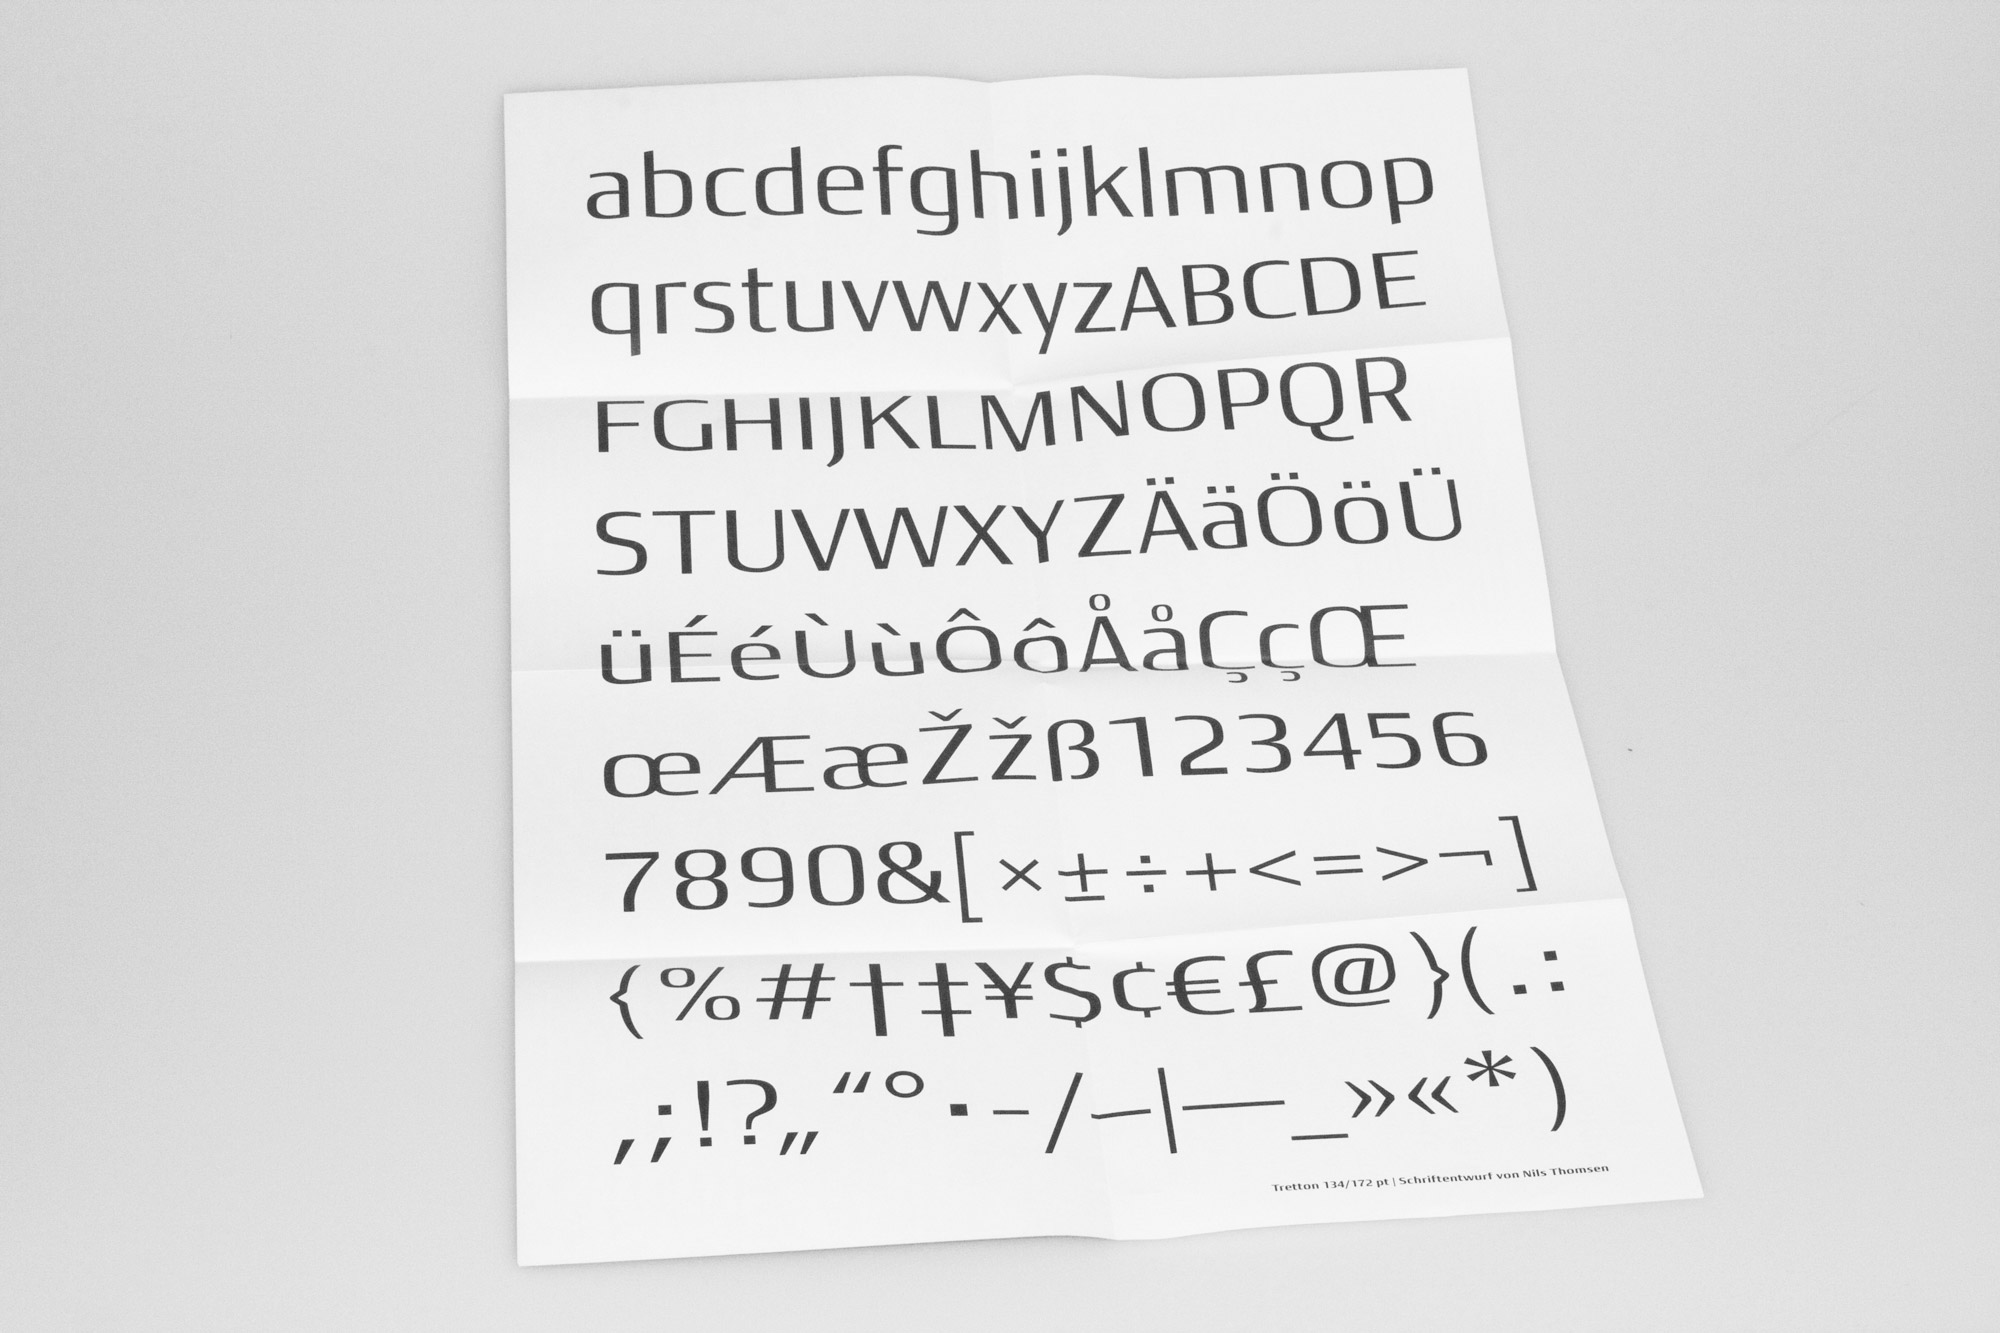 abcdefghijklmnop
qrstuvwxyzABCDE
FGHIJKLMNOPQR
STUVWXYZÄäÖöÜ
üÉéÙùÔôÅåÇçŒ
œÆæŽžß123456
7890&[×±÷+<=>¬]
{%#†‡¥$¢€£@}(.:
,;!?„“°·-/–|—_»«*)
Tretton 134/172 pt | Schriftentwurf von Nils Thomsen